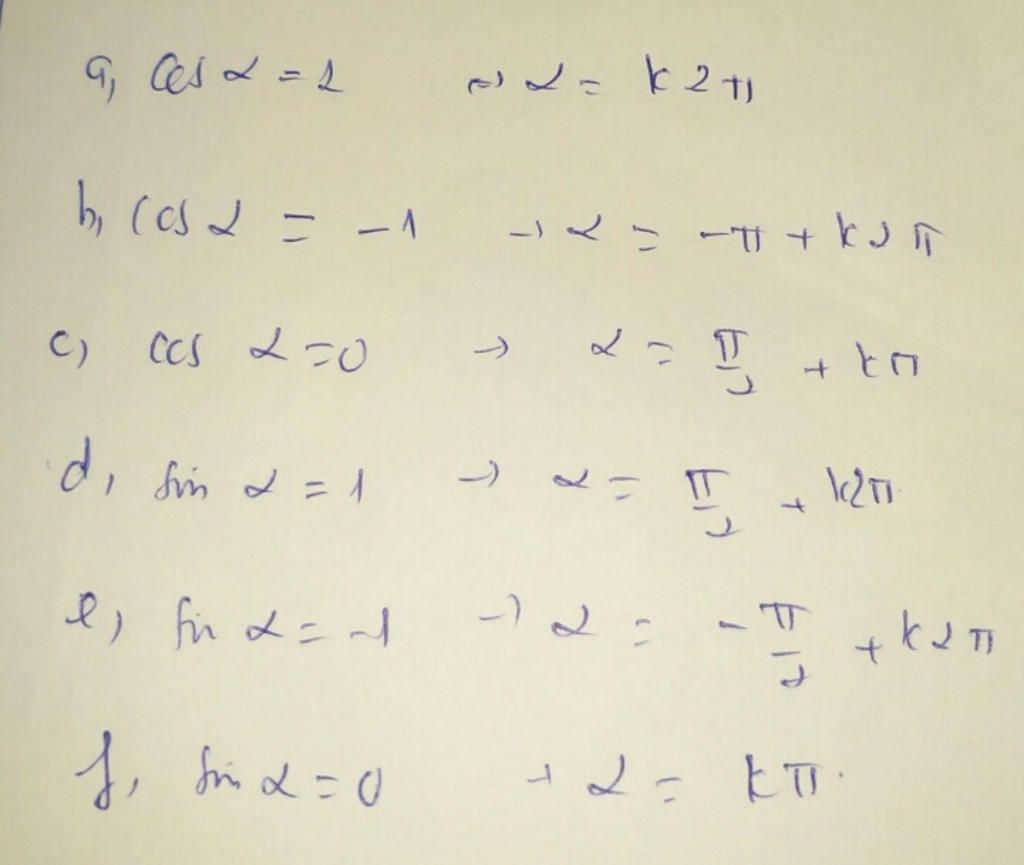 a, cos α = 1 → α = k2π
b, cos α = -1 → α = -π + k2π
c) cos α = 0 → α = π/2 + kπ
d, sin α = 1 → α = π/2 + k2π
e) sin α = -1 → α = -π/2 + k2π
f, sin α = 0 → α = kπ.